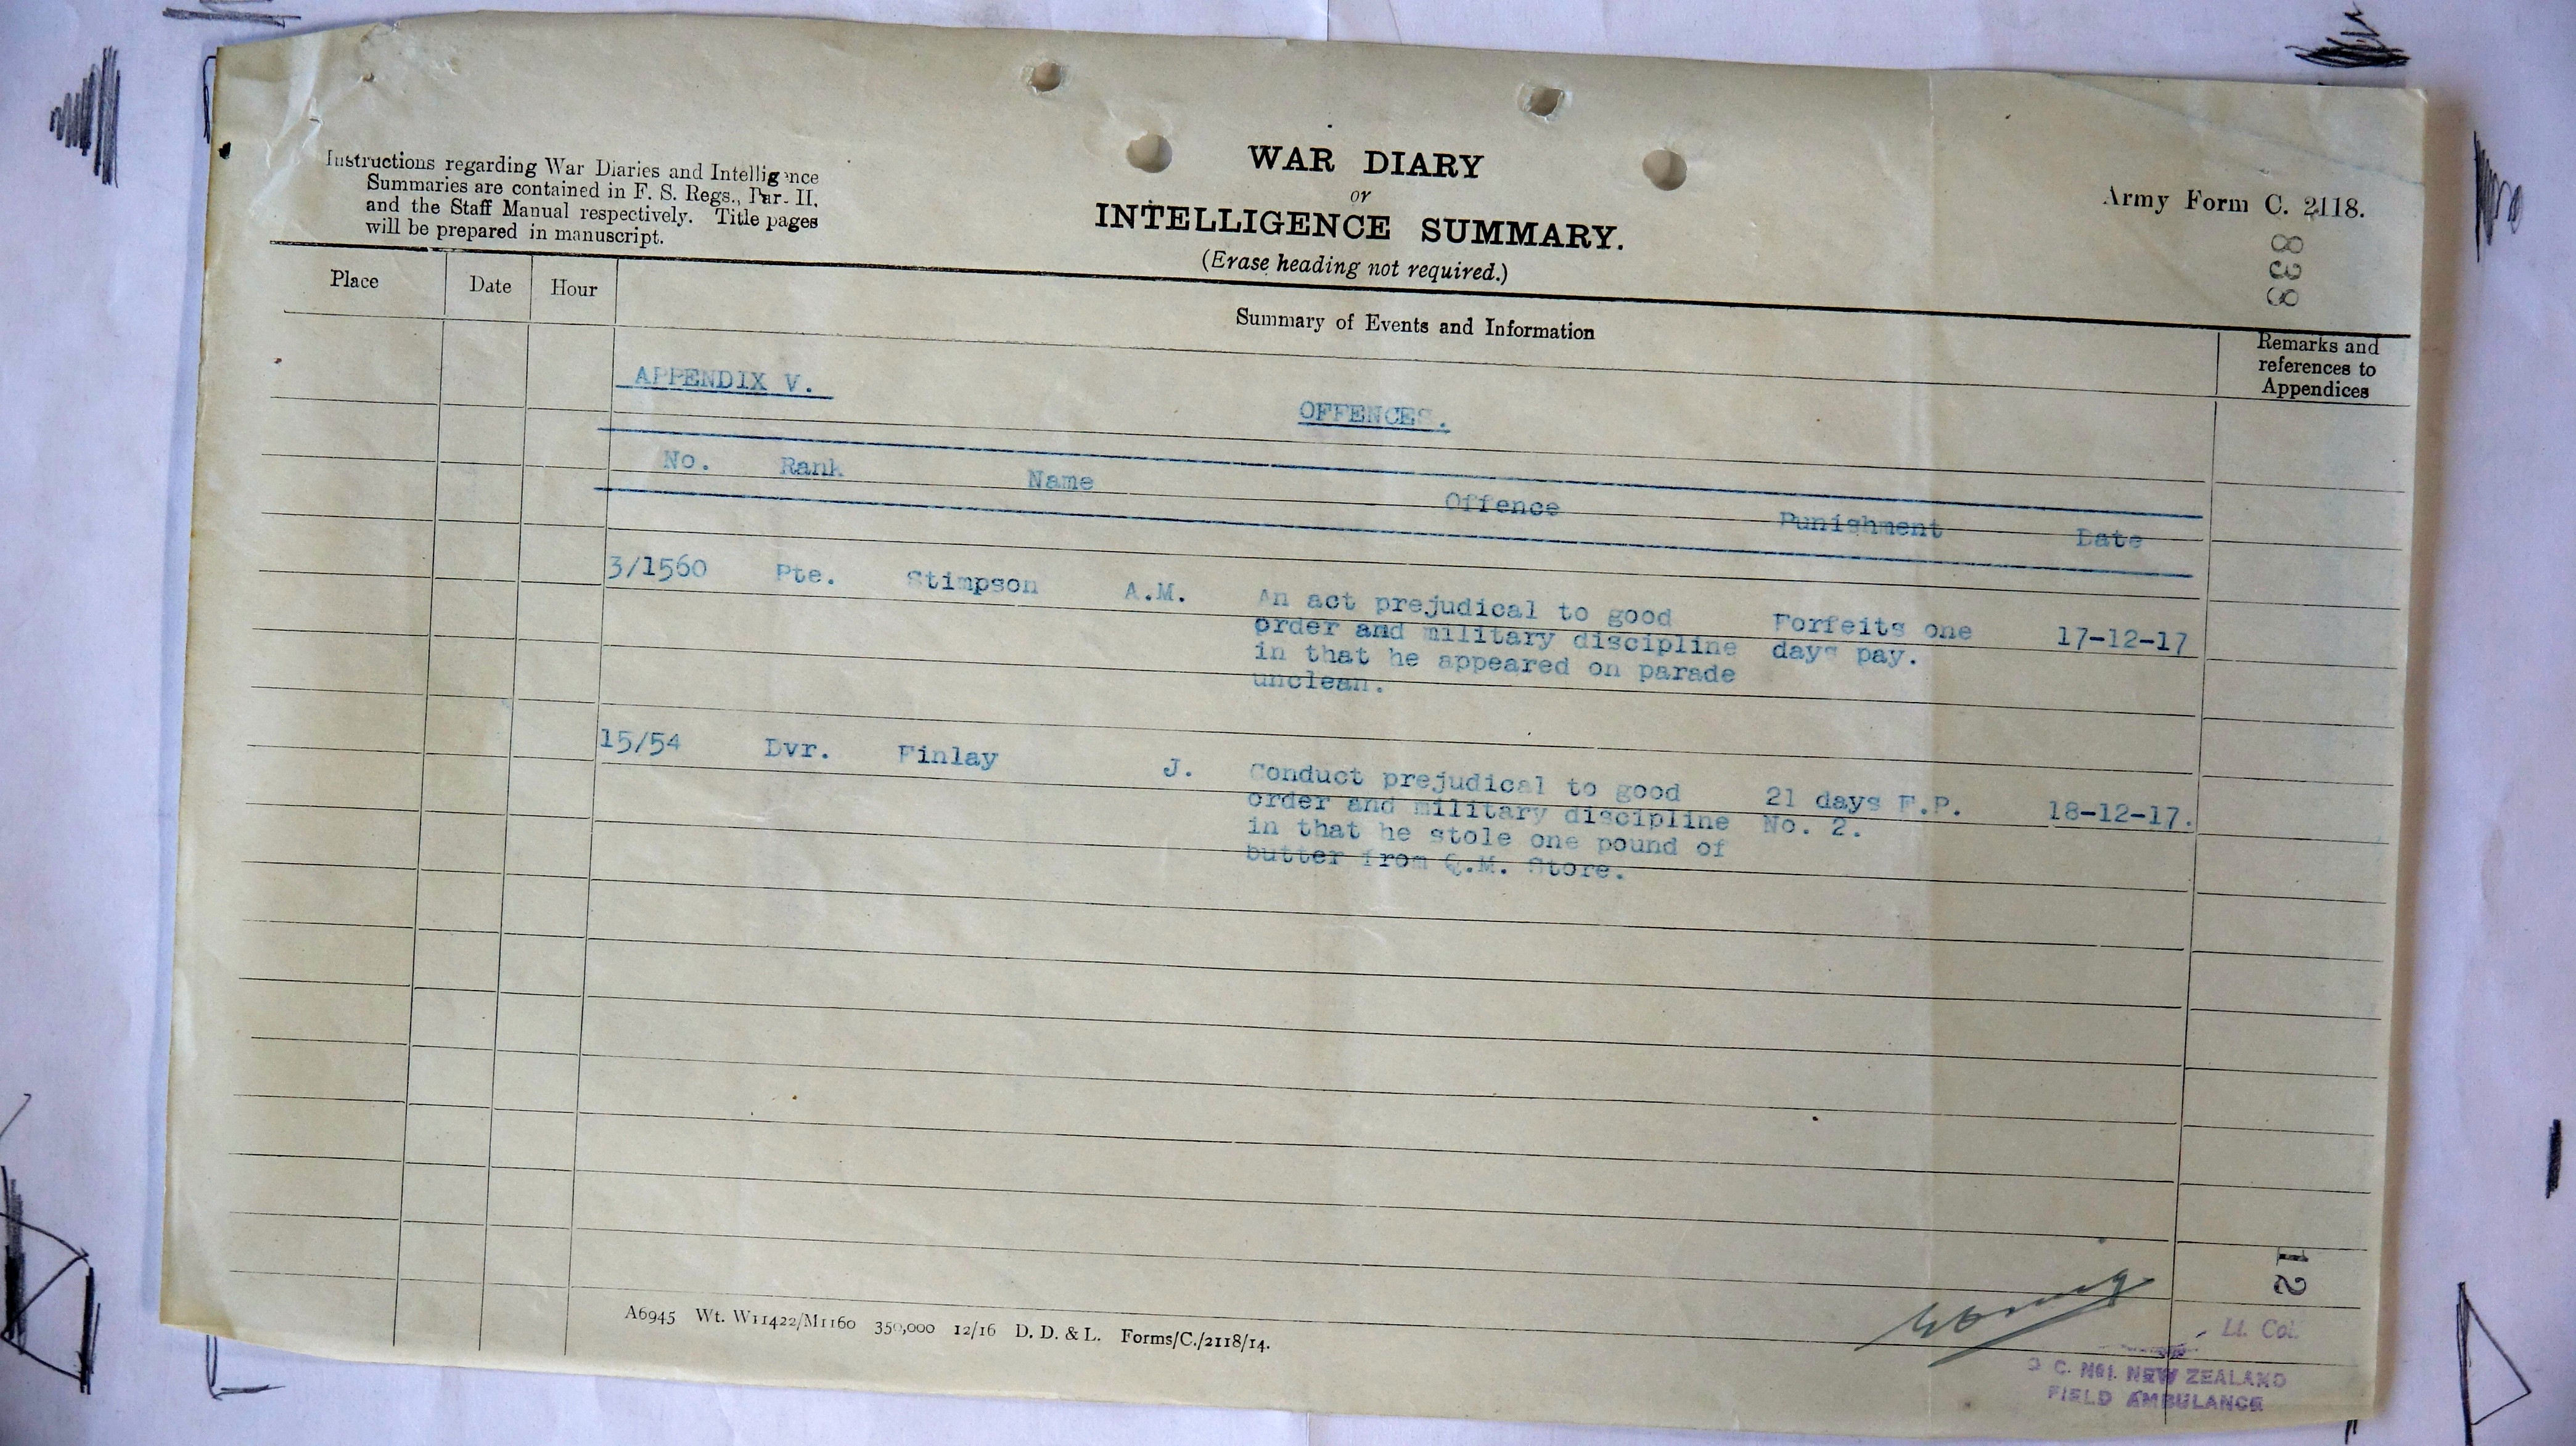 Instructions regarding War Diaries and Intelligence
Summaries are contained in F. S. Regs., Par. II.
and the Staff Manual respectively. Title pages
will be prepared in manuscript.
WAR DIARY
or
INTELLIGENCE SUMMARY.
(Erase heading not required.)
Army Form C. 2118.
838
Place Date Hour Summary of Events and Information Remarks and
references to
Appendices
APPENDIX V.
OFFENCES.
No. Rank Name Offence Punishment Date
3/1560 Pte. Stimpson A.M. An act prejudical to good
order and military discipline Forfeits one 17-12-17
in that he appeared on parade days pay.
unclean.
15/54 Dvr. Finlay J. Conduct prejudical to good
order and military discipline 21 days F.P. 18-12-17.
in that he stole one pound of No. 2.
butter from Q.M. Store.
12
A6945 Wt. W11422/M1160 350,000 12/16 D. D. & L. Forms/C./2118/14.
Lt. Col.
O C. No1. NEW ZEALAND
FIELD AMBULANCE